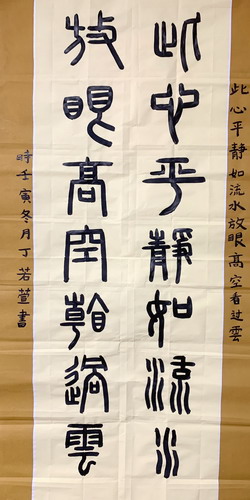 此心平靜如流水放眼高空看过雲
此心平靜如流水
放眼高空看過雲
時壬寅冬月丁若萱書